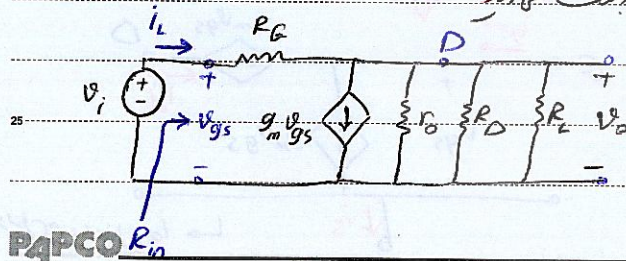 i_L R_G D
+ +
v_i + - v_gs g_m v_gs r_o R_D R_L v_o
25
- -
R_in
PAPCO